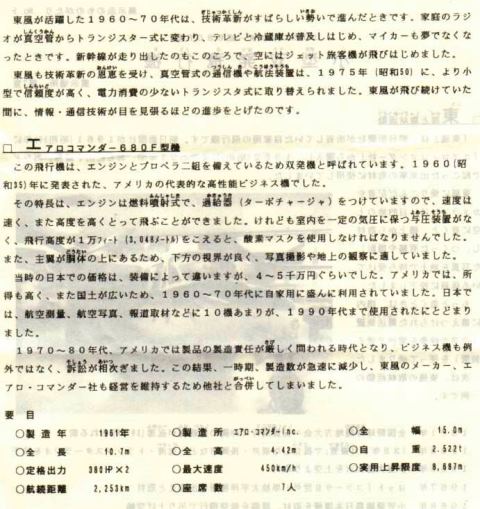 東風が活躍した1960～70年代は、技術革新がすばらしい勢いで進んだときです。家庭のラジ
オが真空管からトランジスター式に変わり、テレビと冷蔵庫が普及しはじめ、マイカーも夢でなくな
ったときです。新幹線が走り出したのもこのころで、空にはジェット旅客機が飛びはじめました。
東風も技術革新の恩恵を受け、真空管式の通信機や航法装置は、1975年（昭和50）に、より小
型で信頼度が高く、電力消費の少ないトランジスタ式に取り替えられました。東風が飛び続けていた
間に、情報・通信技術が目を見張るほどの進歩をとげたのです。
□ エアロコマンダー680F型機
この飛行機は、エンジンとプロペラ二組を備えているため双発機と呼ばれています。1960(昭
和35)年に発表された、アメリカの代表的な高性能ビジネス機でした。
その特長は、エンジンは燃料噴射式で、過給器（ターボチャージャ）をつけていますので、速度は
速く、また高度を高くとって飛ぶことができました。けれども室内を一定の気圧に保つ与圧装置がな
く、飛行高度が1万フィート(3,048メートル)をこえると、酸素マスクを使用しなければなりませんでした。
また、主翼が胴体の上にあるため、下方の視界が良く、写真撮影や地上の観察に適していました。
当時の日本での価格は、装備によって違いますが、4～5千万円ぐらいでした。アメリカでは、所
得も高く、また国土が広いため、1960～70年代に自家用に盛んに利用されていました。日本で
は、航空測量、航空写真、報道取材などに10機あまりが、1990年代まで使用されたにとどまり
ました。
1970～80年代、アメリカでは製品の製造責任が厳しく問われる時代となり、ビジネス機も例
外ではなく、訴訟が相次ぎました。この結果、一時期、製造数が急速に減少し、東風のメーカー、エ
アロ・コマンダー社も経営を維持するため他社と合併してしまいました。
要 目
○製造年 1961年 ○製造所 エアロ・コマンダーInc. ○全幅 15.0m
○全長 10.7m ○全高 4.42m ○自重 2.522t
○定格出力 380HP×2 ○最大速度 450km/h ○実用上昇限度 8,687m
○航続距離 2,253km ○座席数 7人